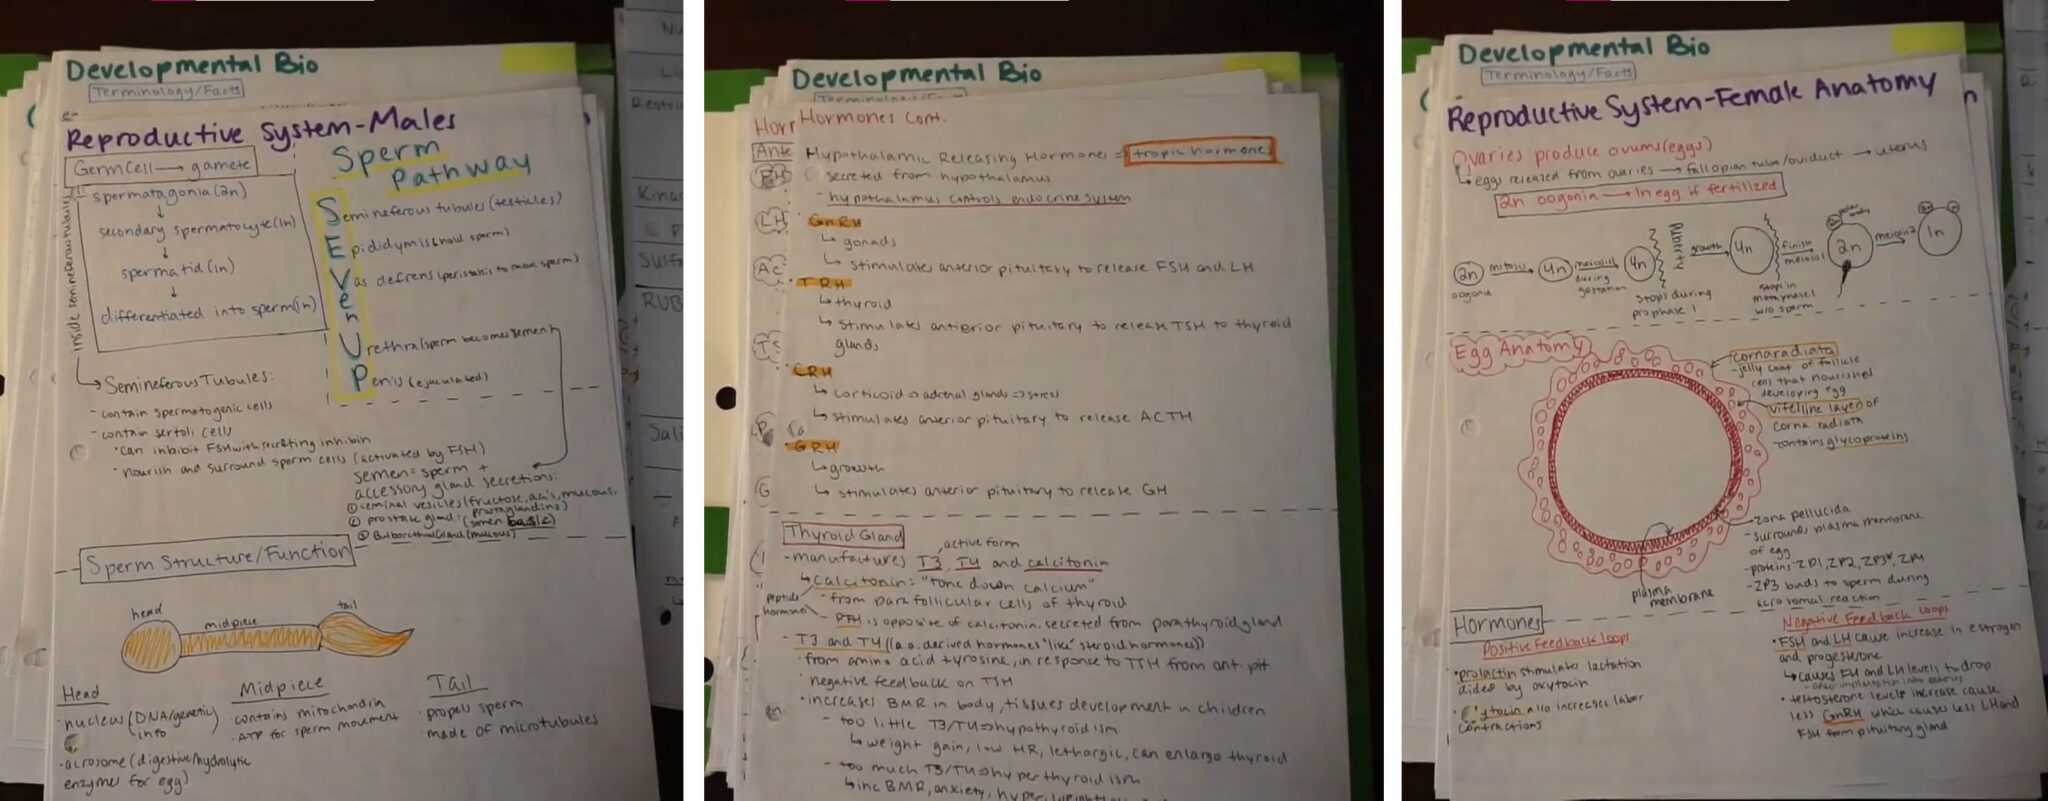 Developmental Bio
Terminology/Facts
Reproductive System-Males
Germ Cell → gamete
spermatagonia (2n)
↓
secondary spermatocyte (1n)
↓
spermatid (1n)
↓
differentiated into sperm (1n)
inside semineferous tubules
Sperm
Pathway
Semineferous tubules (testicles)
Epididymis (
sperm)
Vas defrens (peristalsis to move sperm)
e
n
Urethra (sperm becomes semen)
Penis (ejaculated)
→ Semineferous Tubules:
- contain spermatogenic cells
- contain sertoli cells
• can inhibit FSH with secreting inhibin
• nourish and surround sperm cells (activated by FSH)
semen = sperm +
accessory gland secretions:
① seminal vesicles (fructose,
mucous,
prostaglandins)
② prostate gland: (semen basic)
③ Bulbourethral Gland (mucous)
Sperm Structure/Function
head
midpiece
tail
Head
• nucleus (DNA/genetic
info
• acrosome (digestive/hydrolytic
enzymes for egg)
Midpiece
• contains mitochondria
• ATP for sperm movement
Tail
• propels sperm
• made of microtubules
Nu
Kinas
Surfa
RUB
Sali
Developmental Bio
Horr
Hormones Cont.
Ante
Hypothalamic Releasing Hormones = tropic hormone
secreted from hypothalamus
- hypothalamus controls endocrine system
LH
• GnRH
↳ gonads
↳ stimulates anterior pituitary to release FSH and LH
Ac
• TRH
↳ thyroid
↳ stimulates anterior pituitary to release TSH to thyroid
glands
TS
• CRH
↳ corticoid ⇒ adrenal glands ⇒ stress
↳ stimulates anterior pituitary to release ACTH
• GRH
↳ growth
↳ stimulates anterior pituitary to release GH
G
Thyroid Gland
active form
- manufactures T3, T4 and calcitonin
↳ calcitonin: "tone down calcium"
peptide
hormones
- from parafollicular cells of thyroid
- PTH is opposite of calcitonin. secreted from parathyroid gland
- T3 and T4 ((a.a. derived hormones "like" steroid hormones))
• from amino acid tyrosine, in response to TSH from ant. pit
• negative feedback on TSH
• increases BMR in body, tissues development in children
- too little T3/T4 ⇒ hypothyroidism
↳ weight gain, low HR, lethargic, can enlarge thyroid
- too much T3/T4 ⇒ hyperthyroidism
↳ inc BMR, anxiety, hyper,
Developmental Bio
Terminology/Facts
Reproductive System-Female Anatomy
Ovaries produce ovums (eggs)
↳ eggs released from ovaries → fallopian tube/oviduct → uterus
2n oogonia → 1n egg if fertilized
2n
oogonia
mitosis
4n
meiosis 1
during
gestation
4n
stops during
prophase 1
Puberty
growth
4n
stop in
metaphase 1
w/o sperm
finish
meiosis 1
polar
body
2n
meiosis 2
1n
Egg Anatomy
cornaradiata
- jelly coat of follicle
cells that nourished
developing egg
vitelline layer of
corna radiata
- contains glycoproteins
- zona pellucida
- surrounds plasma membrane
of egg
- proteins ZP1, ZP2, ZP3*, ZP4
- ZP3 binds to sperm during
acrosomal reaction
plasma
membrane
Hormones
Positive Feedback loops
• prolactin stimulates lactation
aided by oxytocin
• oxytocin also increases labor
contractions
Negative Feedback Loops
• FSH and LH cause increase in estrogen
and progesterone
↳ causes FSH and LH levels to drop
• testosterone levels increase cause
less GnRH which causes less LH and
FSH from pituitary gland